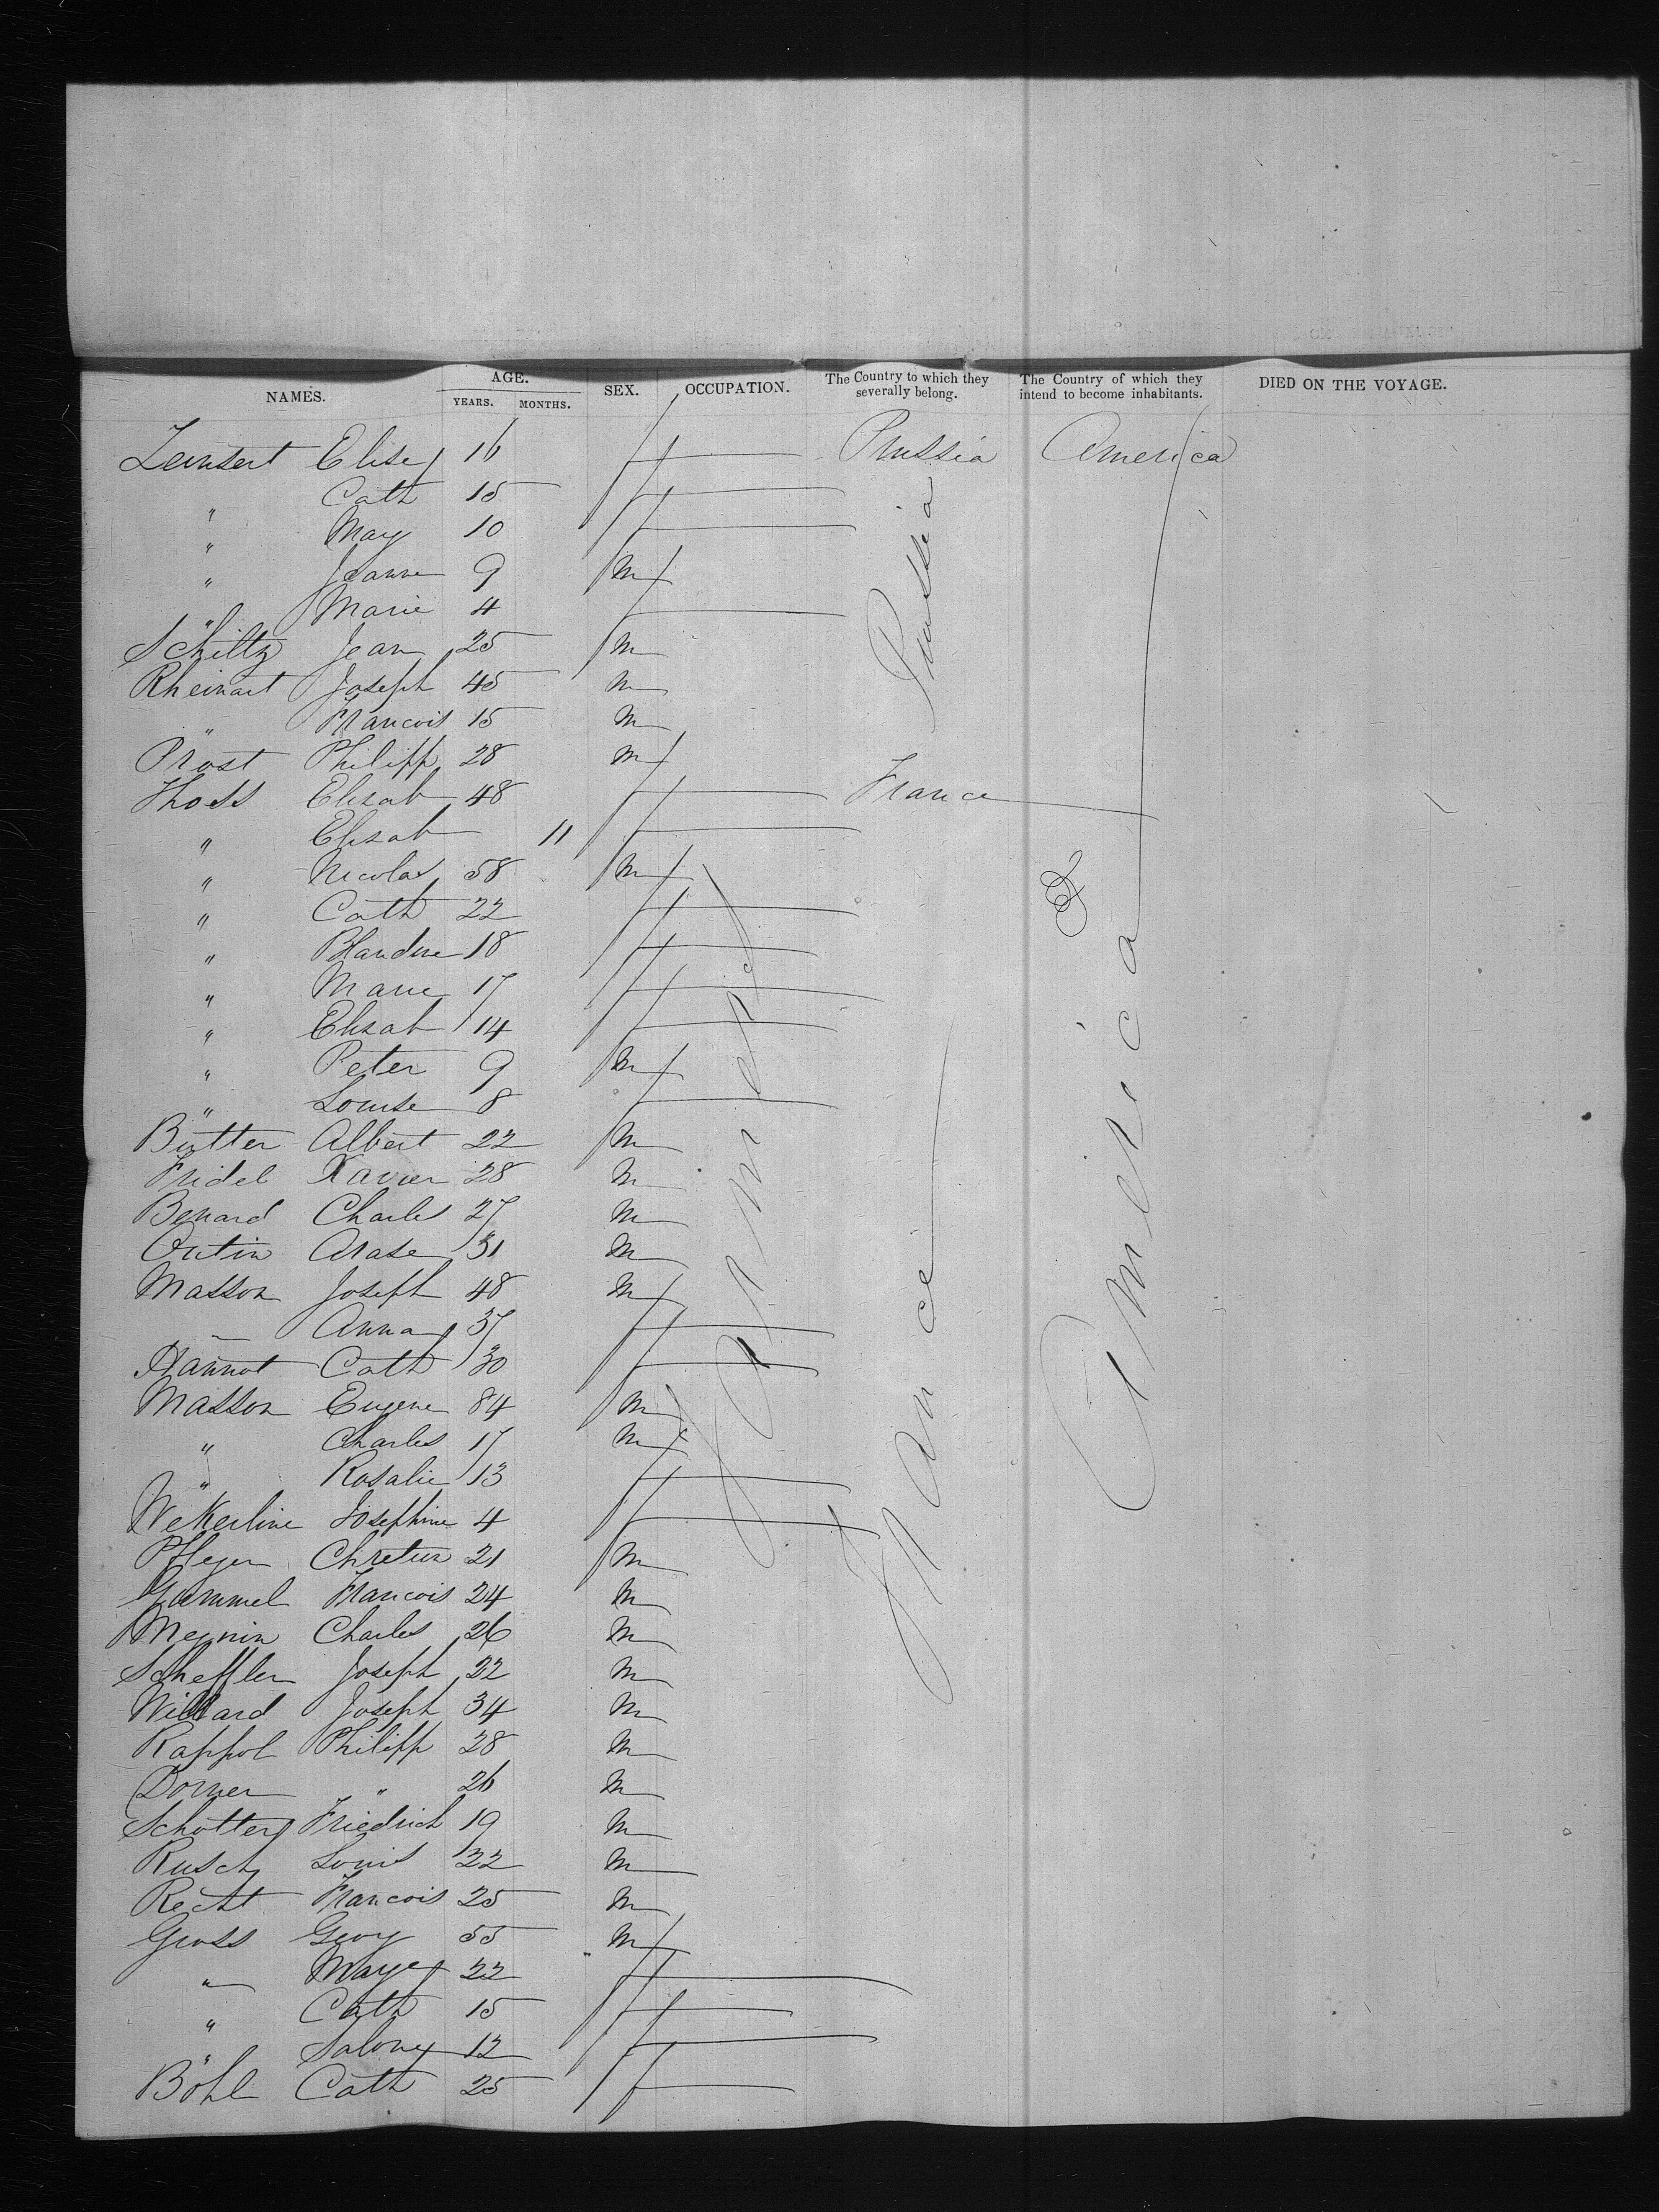 NAMES. AGE. YEARS. MONTHS. SEX. OCCUPATION. The Country to which they severally belong. The Country of which they intend to become inhabitants. DIED ON THE VOYAGE.
Elise 16 f Prussia America
" Cath 15 f
" May 10 f
" Jeanne 9 m
" Marie 4 f
Schiltz Jean 25 m
Rheinart Joseph 45 m
" Francois 15 m
Prost Philipp 28 m
Thoss Elisab 48 f France
" Elisab 11 f
" Nicolas 58 m
" Cath 22 f
" Blandine 18 f
" Marie 17 f
" Elisab 14 f
" Peter 9 m
" Louise 8 f
Butter Albert 22 m
Fridel Xavier 28 m
Benard Charles 27 m
Outin Arase 31 m
Masson Joseph 48 m
Anna 37 f
Hannot Cath 30 f
Masson Eugene 84 m
" Charles 17 m
" Rosalie 13 f
Wekerline Josephine 4 f
Pfleger Chretien 21 m
Gummel Francois 24 m
Megnin Charles 26 m
Scheffler Joseph 22 m
Willard Joseph 34 m
Rappol Philipp 28 m
Dorner " 26 m
Schotter Friedrich 19 m
Rusch Louis 22 m
Recht Francois 25 m
Gross Georg 55 m
" 22 f
" Cath 15 f
" Salony 12 f
Böhl Cath 25 f
Prussia
Farmers
France
America